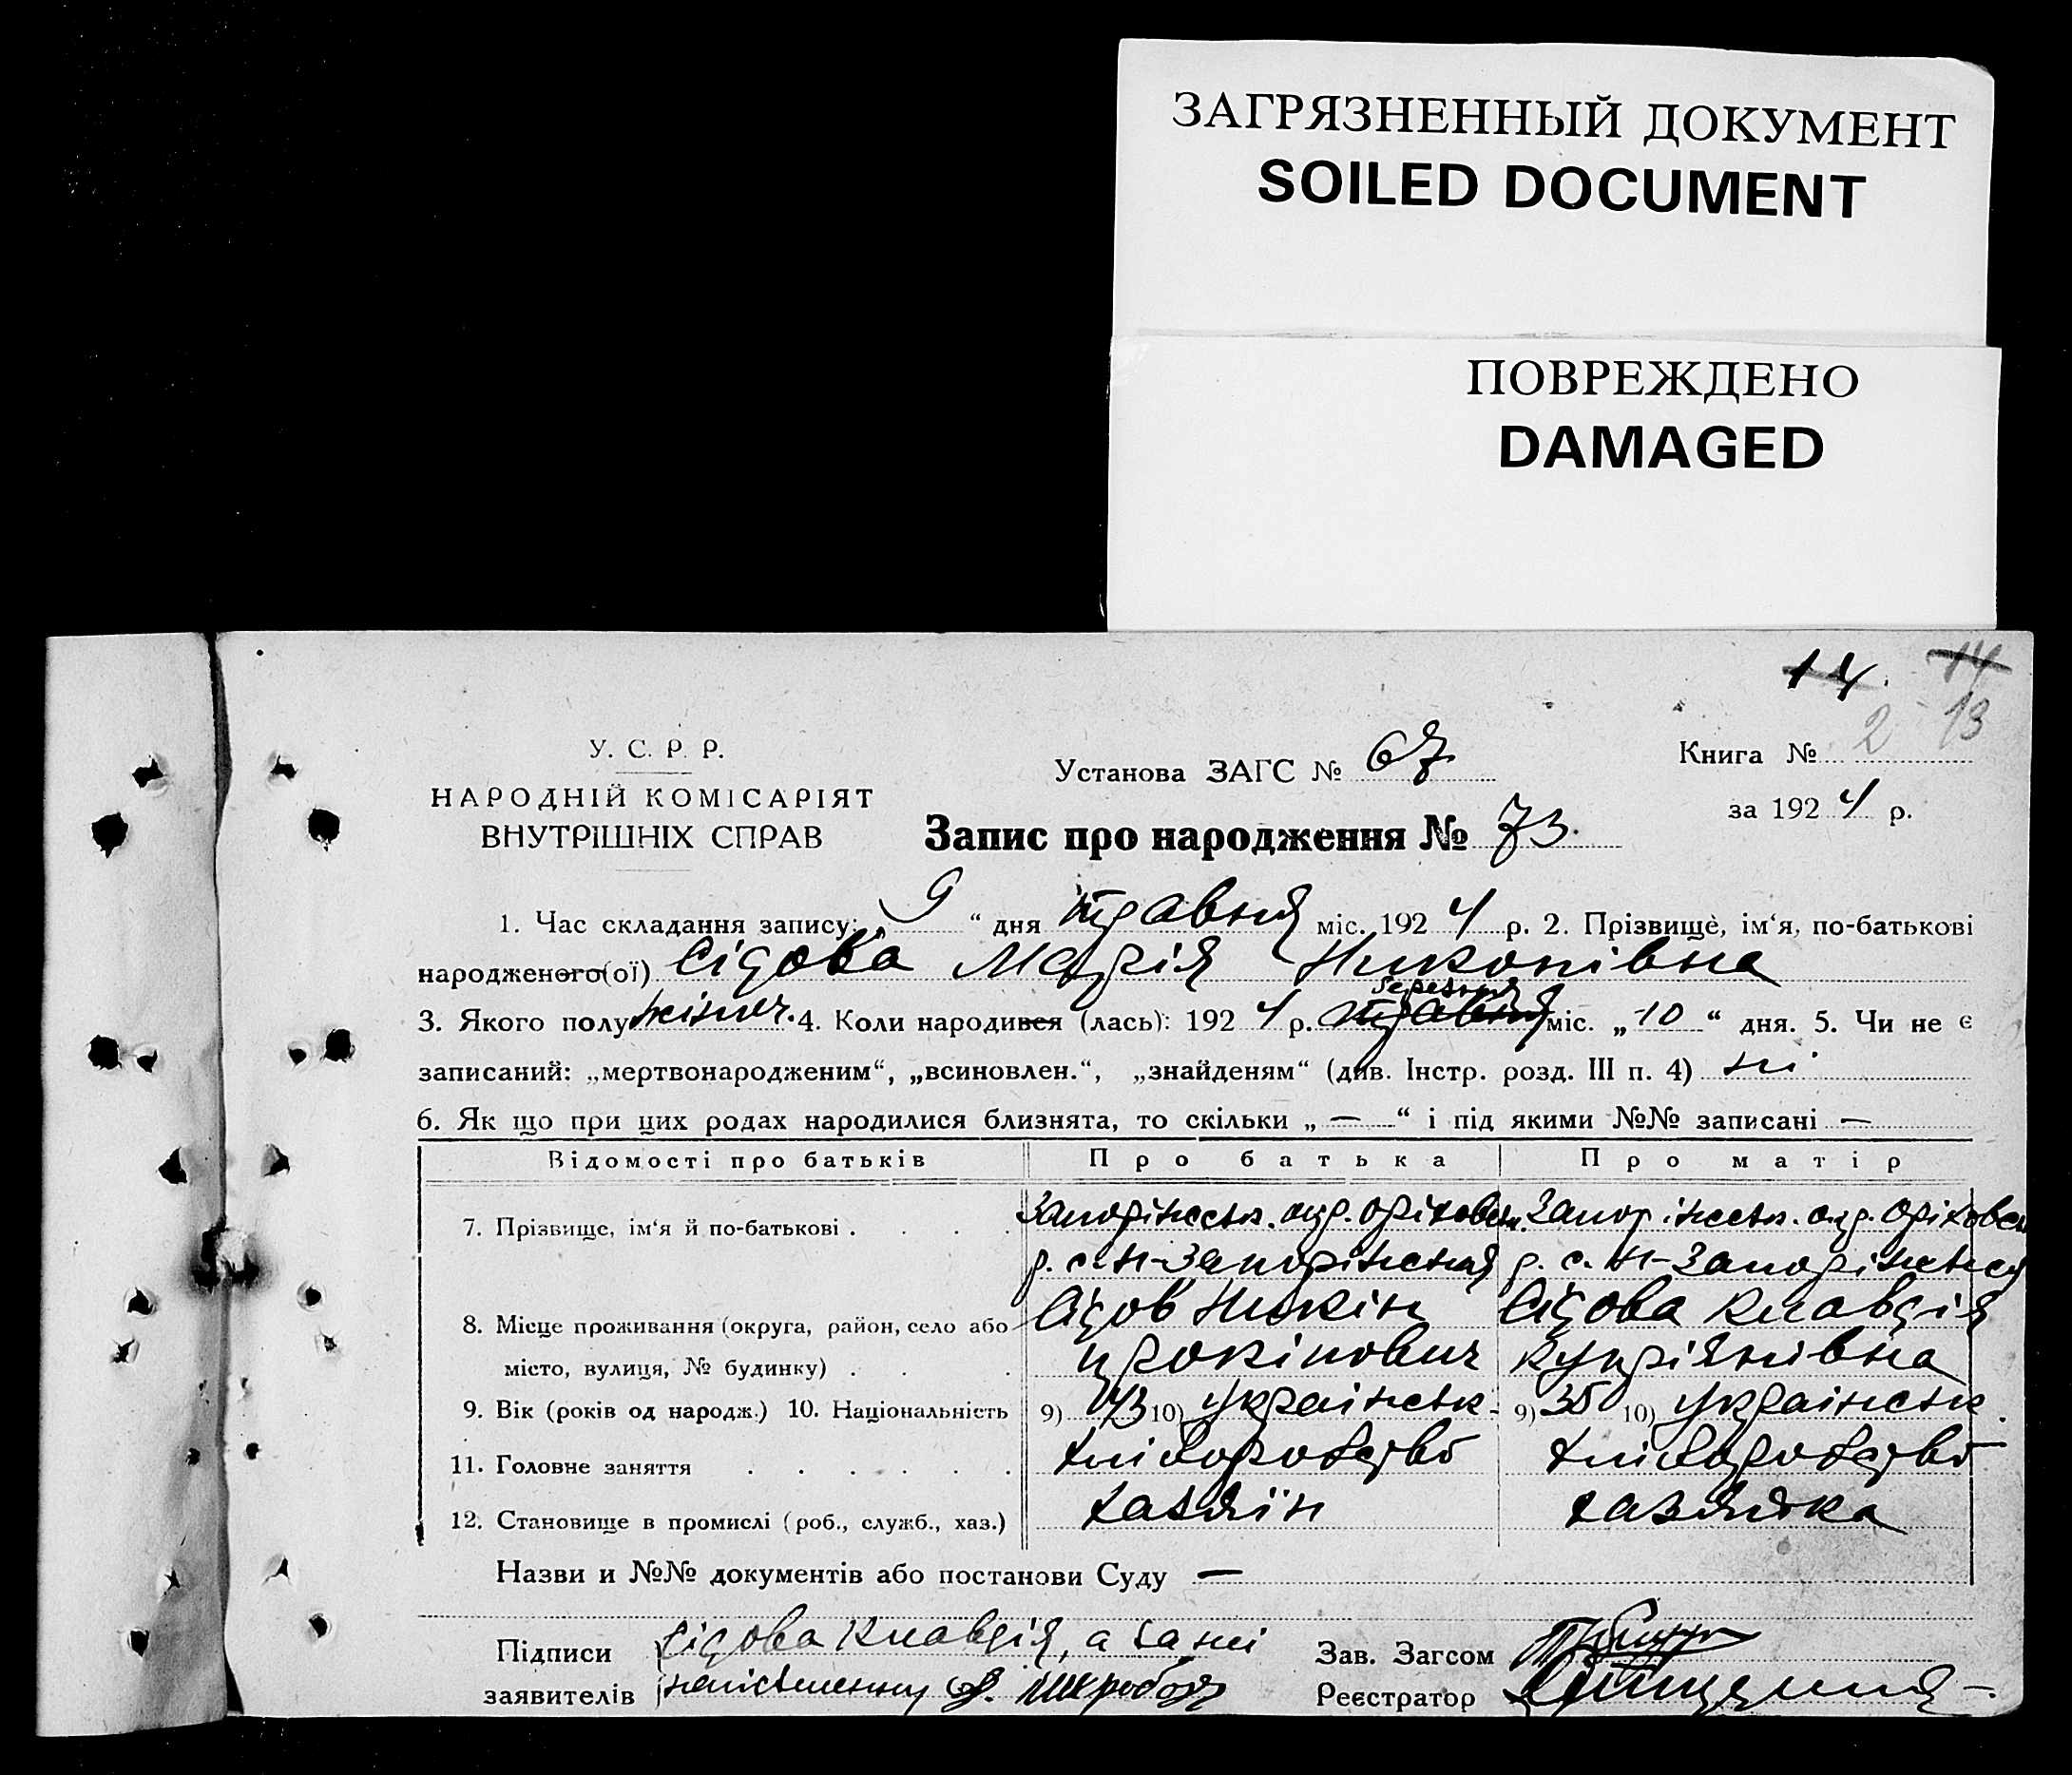 ЗАГРЯЗНЕННЫЙ ДОКУМЕНТ
SOILED DOCUMENT
ПОВРЕЖДЕНО
DAMAGED
14. 14
13
У. С. Р. Р.
НАРОДНІЙ КОМІСАРІЯТ
ВНУТРІШНІХ СПРАВ
Установа ЗАГС № 67
Книга № 2
за 1924 р.
Запис про народження № 73.
1. Час складання запису: „ 9 “ дня травня міс. 1924 р. 2. Прізвище, ім‘я, по-батькові
народженого(ої) Сідова Марія Никонівна
березня
3. Якого полу жіноч. 4. Коли народився (лась): 1924 р. травня міс. „ 10 “ дня. 5. Чи не є
записаний: „мертвонародженим“, „всиновлен.“, „знайденям“ (див. Інстр. розд. III п. 4) ні
6. Як що при цих родах народилися близнята, то скільки „ — “ і під якими №№ записані —
Відомості про батьків Про батька Про матір
7. Прізвище, ім‘я й по-батькові .
Запоріжськ. окр. Оріховськ. Запоріжськ. окр. Оріховськ
р. с. Н-Запоріжська р. с. Н-Запоріжська
Сідов Никін Сідова Клавдія
8. Місце проживання (округа, район, село або
місто, вулиця, № будинку) . Прокіпович Купріянівна
9. Вік (років од народж.) 10. Національність 9) 43 10) Українськ. 9) 35 10) Українськ.
11. Головне заняття хліборобство хліборобство
12. Становище в промислі (роб., служб., хаз.) хазяїн хазяйка
Назви и №№ документів або постанови Суду —
Підписи Сідова Клавдія, а за неі
заявителів неписьменну
Зав. Загсом
Реєстратор